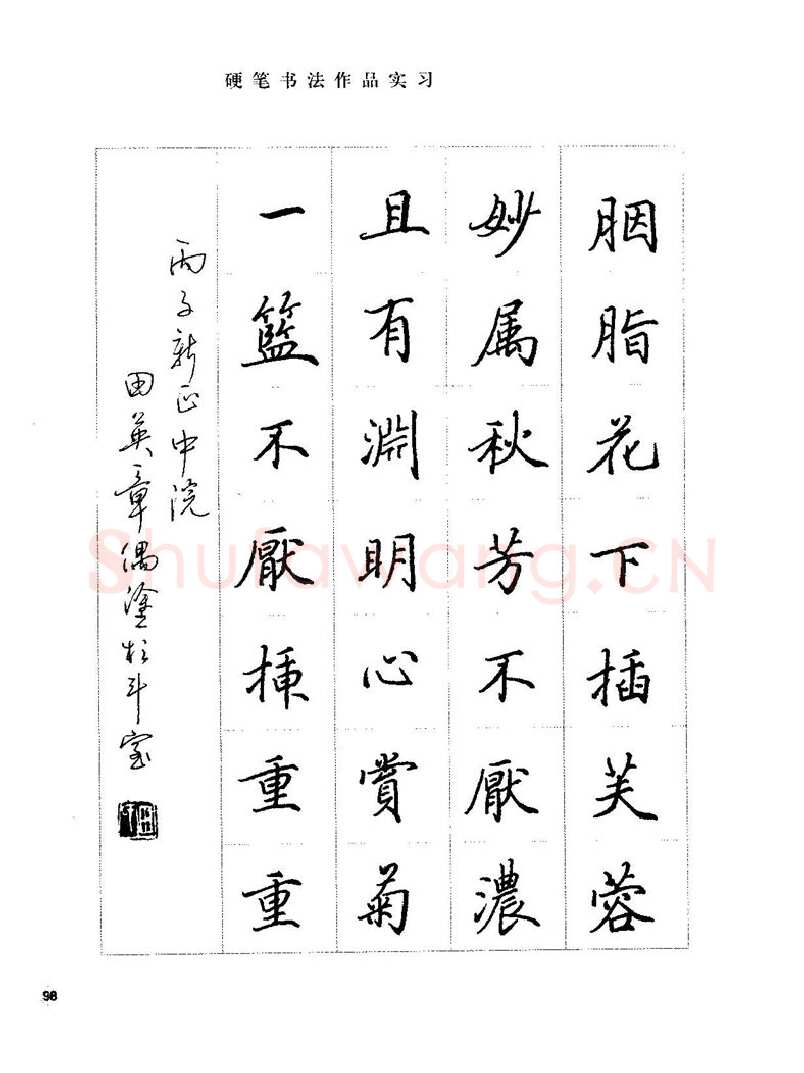 硬笔书法作品实习
胭脂花下插芙蓉
妙属秋芳不厭濃
且有淵明心賞菊
一籃不厭挿重重
丙子新正中浣
田英章偶塗於斗室
Shufawang.CN
98